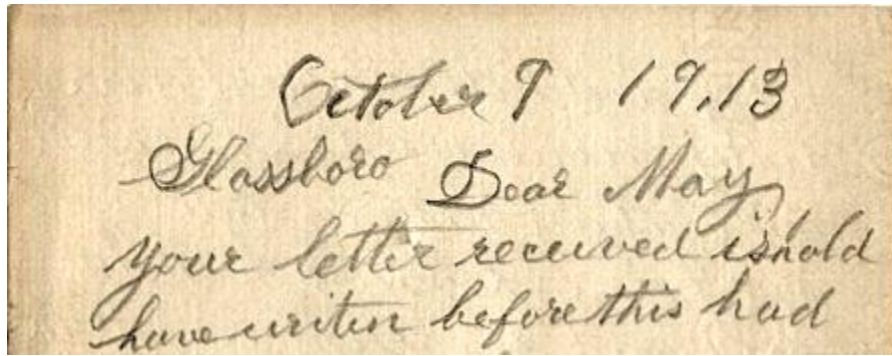 October 9 19.13
Glassboro Dear May
your letter received
have writen before this had